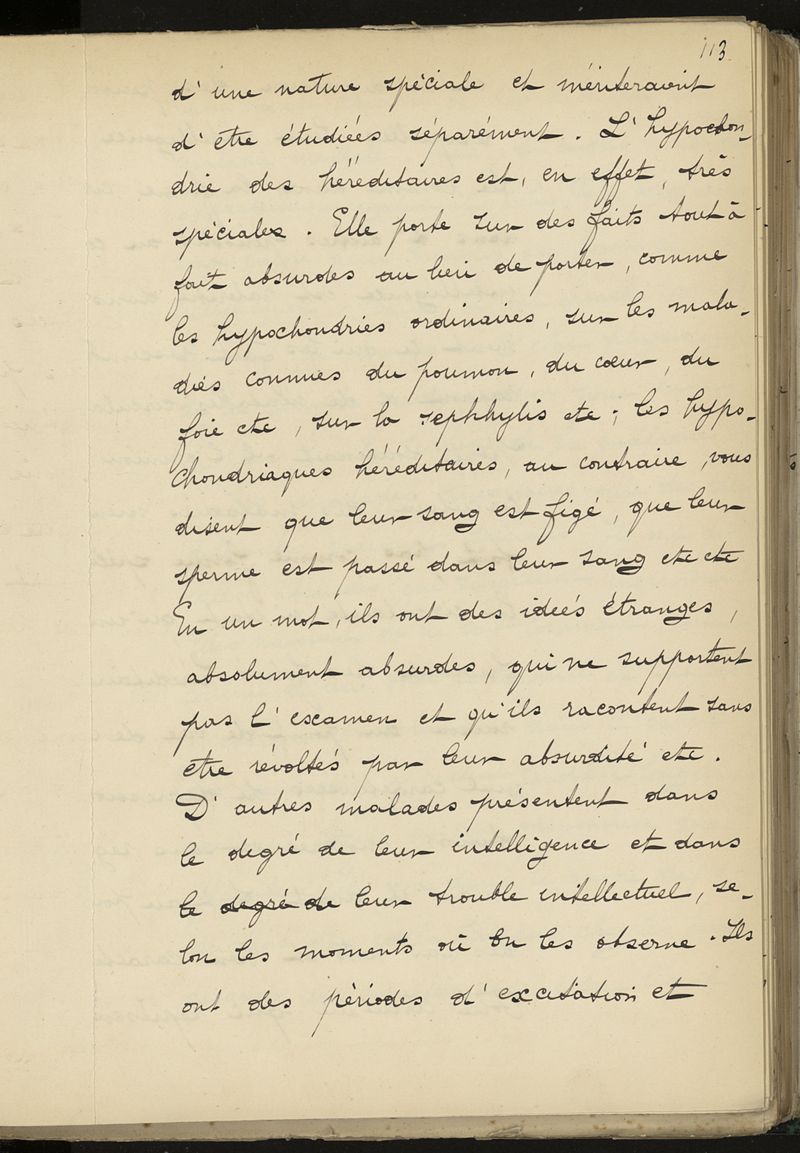 113
d'une nature spéciale et mériteraient
d'etre étudiées séparément. L'hypochon-
drie des héréditaires est, en effet, très
spéciales. Elle porte sur des faits tout à
fait absurdes au lieu de porter, comme
les hypochondries ordinaires, sur les mala-
dies connues du poumon, du cœur, du
foie etc, sur la sephhylis etc; les hypo-
chondriaques héréditaires, au contraire, vous
disent que leur sang est figé, que leur
sperme est passé dans leur sang etc etc
En un mot, ils ont des ideés étranges,
absolument absurdes, qui ne supportent
pas l'escamen et qu'ils racontent sans
etre révoltés par leur absurdité etc.
D'autres malades présentent dans
le degré de leur intelligence et dans
le degré de leur trouble intellectuel, se-
lon les moments où on les observe. Ils
ont des périodes d'excitation et